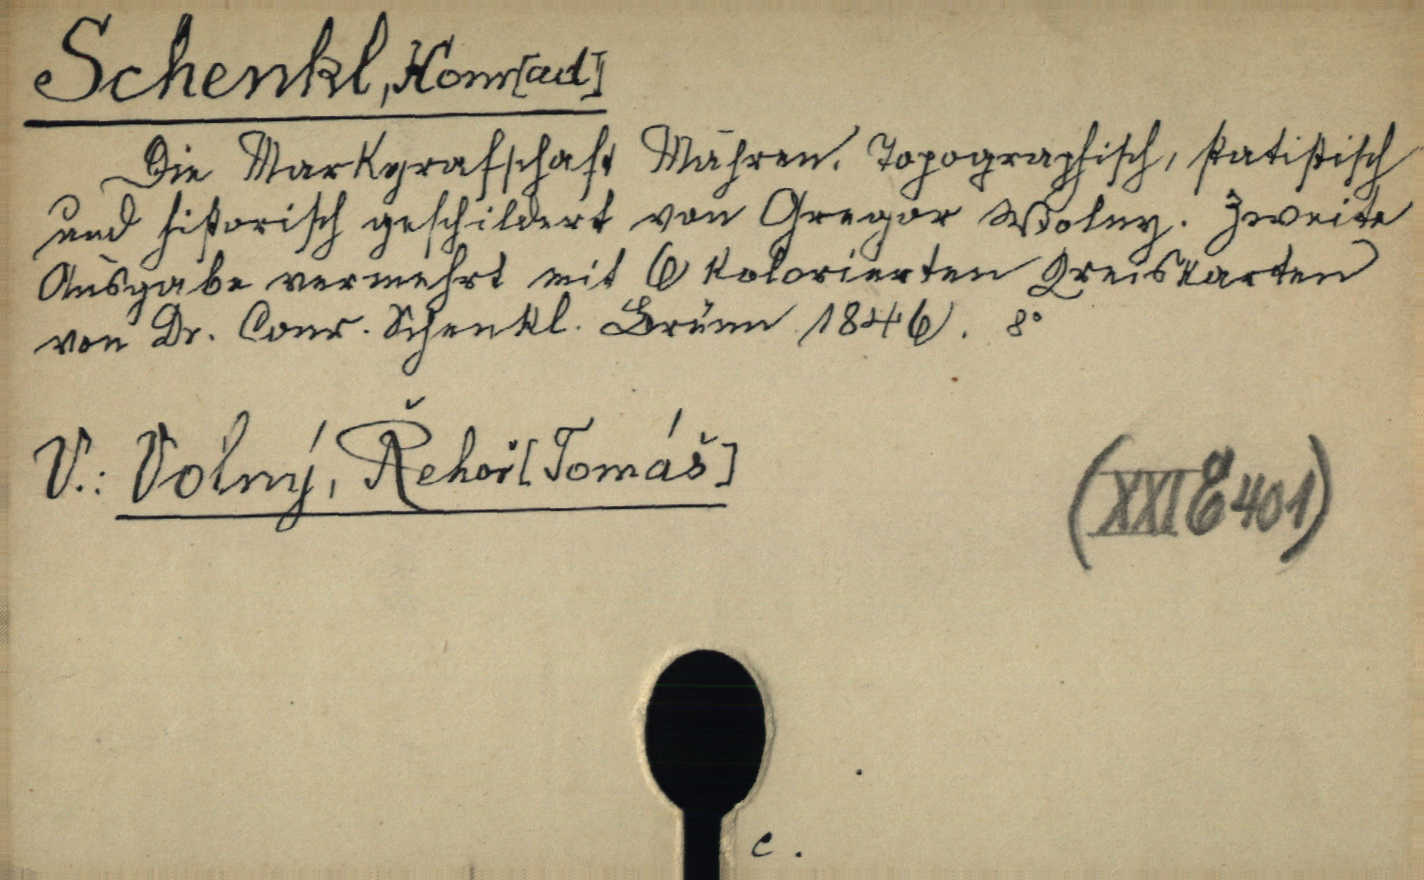 Schenkl, Konr[ad]
Die Markgrafschaft Mähren. Topographisch, statistisch
und historisch geschildert von Gregor Wolny. Zweite
Ausgabe vermehrt mit 6 kolorierten Kreiskarten
von Dr. Conr. Schenkl. Brünn 1846. 8°
V.: Volný, Řehoř [Tomáš]
(XXI E 401)
c.